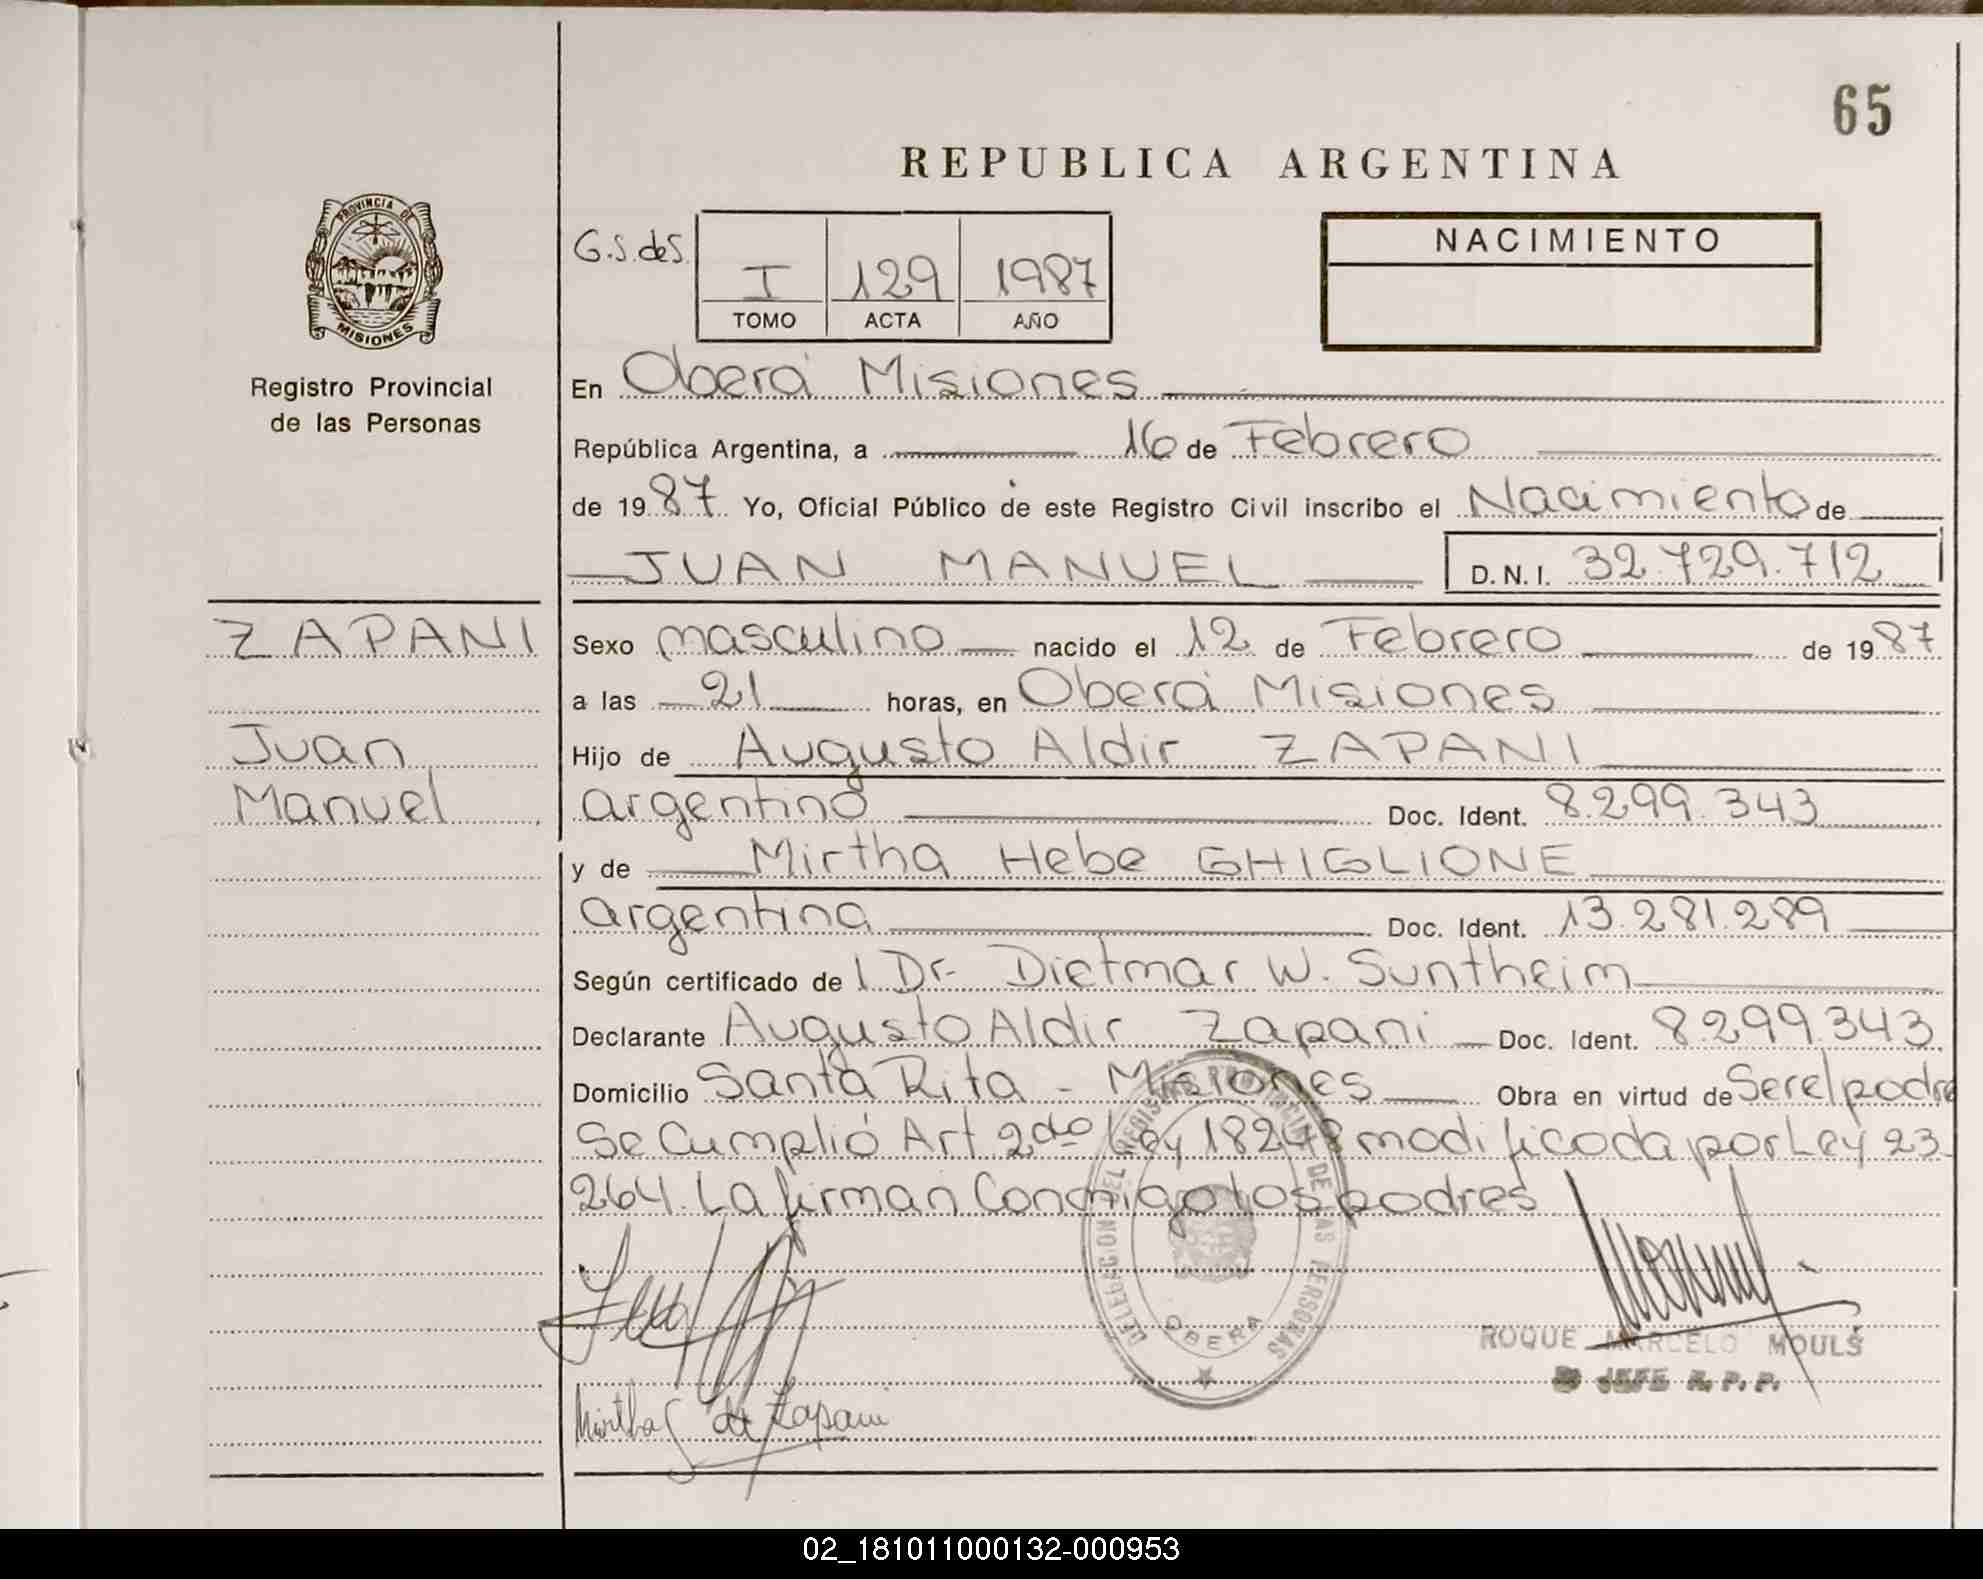 65
REPUBLICA ARGENTINA
PROVINCIA DE
MISIONES
Registro Provincial
de las Personas
G.S. de S.
I 129 1987
TOMO ACTA AÑO
NACIMIENTO
En Oberá Misiones
República Argentina, a 16 de Febrero
de 1987 Yo, Oficial Público de este Registro Civil inscribo el Nacimiento de
JUAN MANUEL D.N.I. 32.729.712
ZAPANI
Juan
Manuel
Sexo masculino nacido el 12 de Febrero de 1987
a las 21 horas, en Oberá Misiones
Hijo de Augusto Aldir ZAPANI
argentino Doc. Ident. 8.299.343
y de Mirtha Hebe GHIGLIONE
argentina Doc. Ident. 13.281.289
Según certificado de l Dr. Dietmar W. Suntheim
Declarante Augusto Aldir Zapani Doc. Ident. 8.299.343
Domicilio Santa Rita - Misiones Obra en virtud de Ser el padre
Se Cumplió Art 2do Ley 18248 modificada por Ley 23.
264. La firman Conmigo los padres
DELEGACION DEL REGISTRO PROVINCIAL DE LAS PERSONAS
OBERA
Mirtha G de Zapani
ROQUE MARCELO MOULS
JEFE R.P.P.
02_181011000132-000953